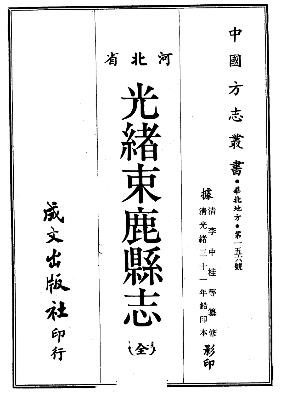 中國方志叢書·華北地方·第一五六號
據清李中桂等纂修
清光緒三十一年鉛印本影印
河北省
光緒束鹿縣志
(全)
成文出版社印行